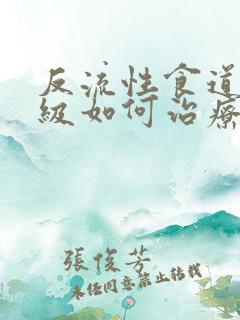 反流性食道
級如何治療
張俊芳
未经同意禁止转载